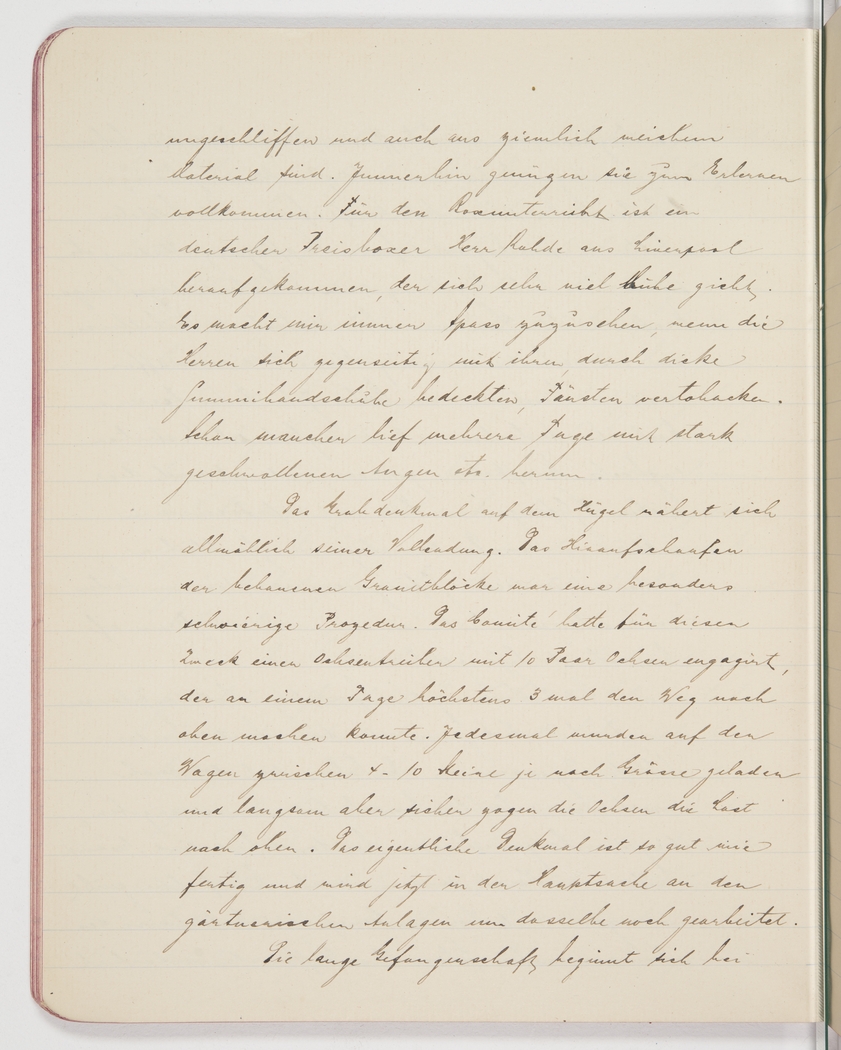 ungeschliffen und auch aus ziemlich weichem
Material sind. Immerhin genügen sie zum Erlernen
vollkommen. Für den Boxunterricht ist ein
deutscher Preisboxer Herr Rohde aus Liverpool
heraufgekommen, der sich sehr viel Mühe giebt.
Es macht mir immer Spass zuzusehen, wenn die
Herren sich gegenseitig mit ihren, durch dicke
Gummihandschuhe bedeckten, Fäusten vertobacken.
Schon mancher lief mehrere Tage mit stark
geschwollenen Augen etc. herum.
Das Grabdenkmal auf dem Hügel nähert sich
allmählich seiner Vollendung. Das Hinaufschaufen
der behauenen Granitblöcke war eine besonders
schwierige Prozedur. Das Comité hatte für diesen
Zweck einen Ochsentreiber mit 10 Paar Ochsen engagirt,
der an einem Tage höchstens 3 mal den Weg nach
oben machen konnte. Jedesmal wurden auf den
Wagen zwischen 4-10 Steine je nach Grösse geladen
und langsam aber sicher zogen die Ochsen die Last
nach oben. Das eigentliche Denkmal ist so gut wie
fertig und wird jetzt in der Hauptsache an den
gärtnerischen Anlagen um dasselbe noch gearbeitet.
Die lange Gefangenschaft beginnt sich bei